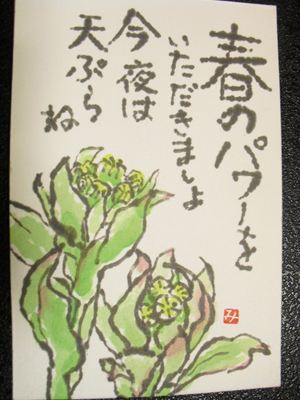 春のパワーを
いただきましょ
今夜は
天ぷら
ね
み